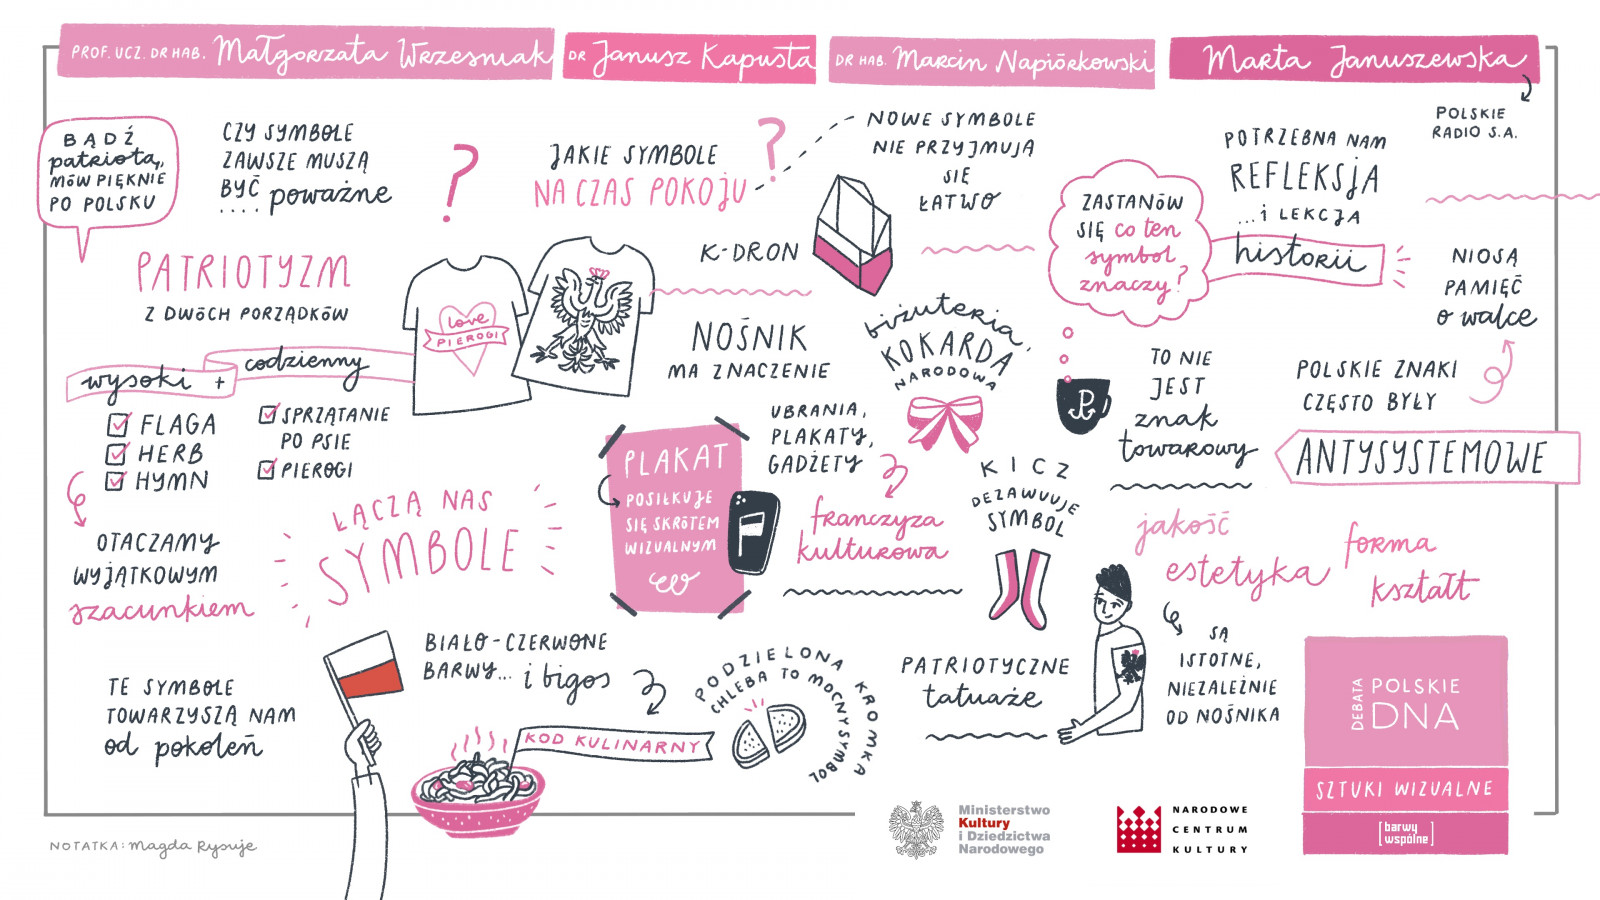 PROF. UCZ. DR HAB. Małgorzata Wrześniak
DR Janusz Kapusta
DR HAB. Marcin Napiórkowski
Marta Januszewska
POLSKIE
RADIO S.A.
BĄDŹ
patriotą,
MÓW PIĘKNIE
PO POLSKU
CZY SYMBOLE
ZAWSZE MUSZĄ
BYĆ poważne
....
?
JAKIE SYMBOLE
NA CZAS POKOJU
?
NOWE SYMBOLE
NIE PRZYJMUJĄ
SIĘ
ŁATWO
K-DRON
ZASTANÓW
SIĘ co ten
symbol
znaczy?
POTRZEBNA NAM
REFLEKSJA
...i LEKCJA
historii
NIOSĄ
PAMIĘĆ
o walce
POLSKIE ZNAKI
CZĘSTO BYŁY
ANTYSYSTEMOWE
PATRIOTYZM
Z DWÓCH PORZĄDKÓW
wysoki +
codzienny
FLAGA
HERB
HYMN
SPRZĄTANIE
PO PSIE
PIEROGI
love
PIEROGI
OTACZAMY
WYJĄTKOWYM
szacunkiem
ŁĄCZĄ NAS
SYMBOLE
NOŚNIK
MA ZNACZENIE
biżuteria,
KOKARDA
NARODOWA
UBRANIA,
PLAKATY,
GADŻETY
franczyza
kulturowa
PLAKAT
POSIŁKUJE
SIĘ SKRÓTEM
WIZUALNYM
TO NIE
JEST
znak
towarowy
KICZ
DEZAWUUJE
SYMBOL
jakość
estetyka
forma
kształt
SĄ
ISTOTNE,
NIEZALEŻNIE
OD NOŚNIKA
PATRIOTYCZNE
tatuaże
TE SYMBOLE
TOWARZYSZĄ NAM
od pokoleń
BIAŁO-CZERWONE
BARWY... i bigos
KOD KULINARNY
PODZIELONA KROMKA
CHLEBA TO MOCNY SYMBOL
DEBATA
POLSKIE
DNA
SZTUKI WIZUALNE
[barwy
wspólne]
Ministerstwo
Kultury
i Dziedzictwa
Narodowego
NARODOWE
CENTRUM
KULTURY
NOTATKA: Magda Rysuje